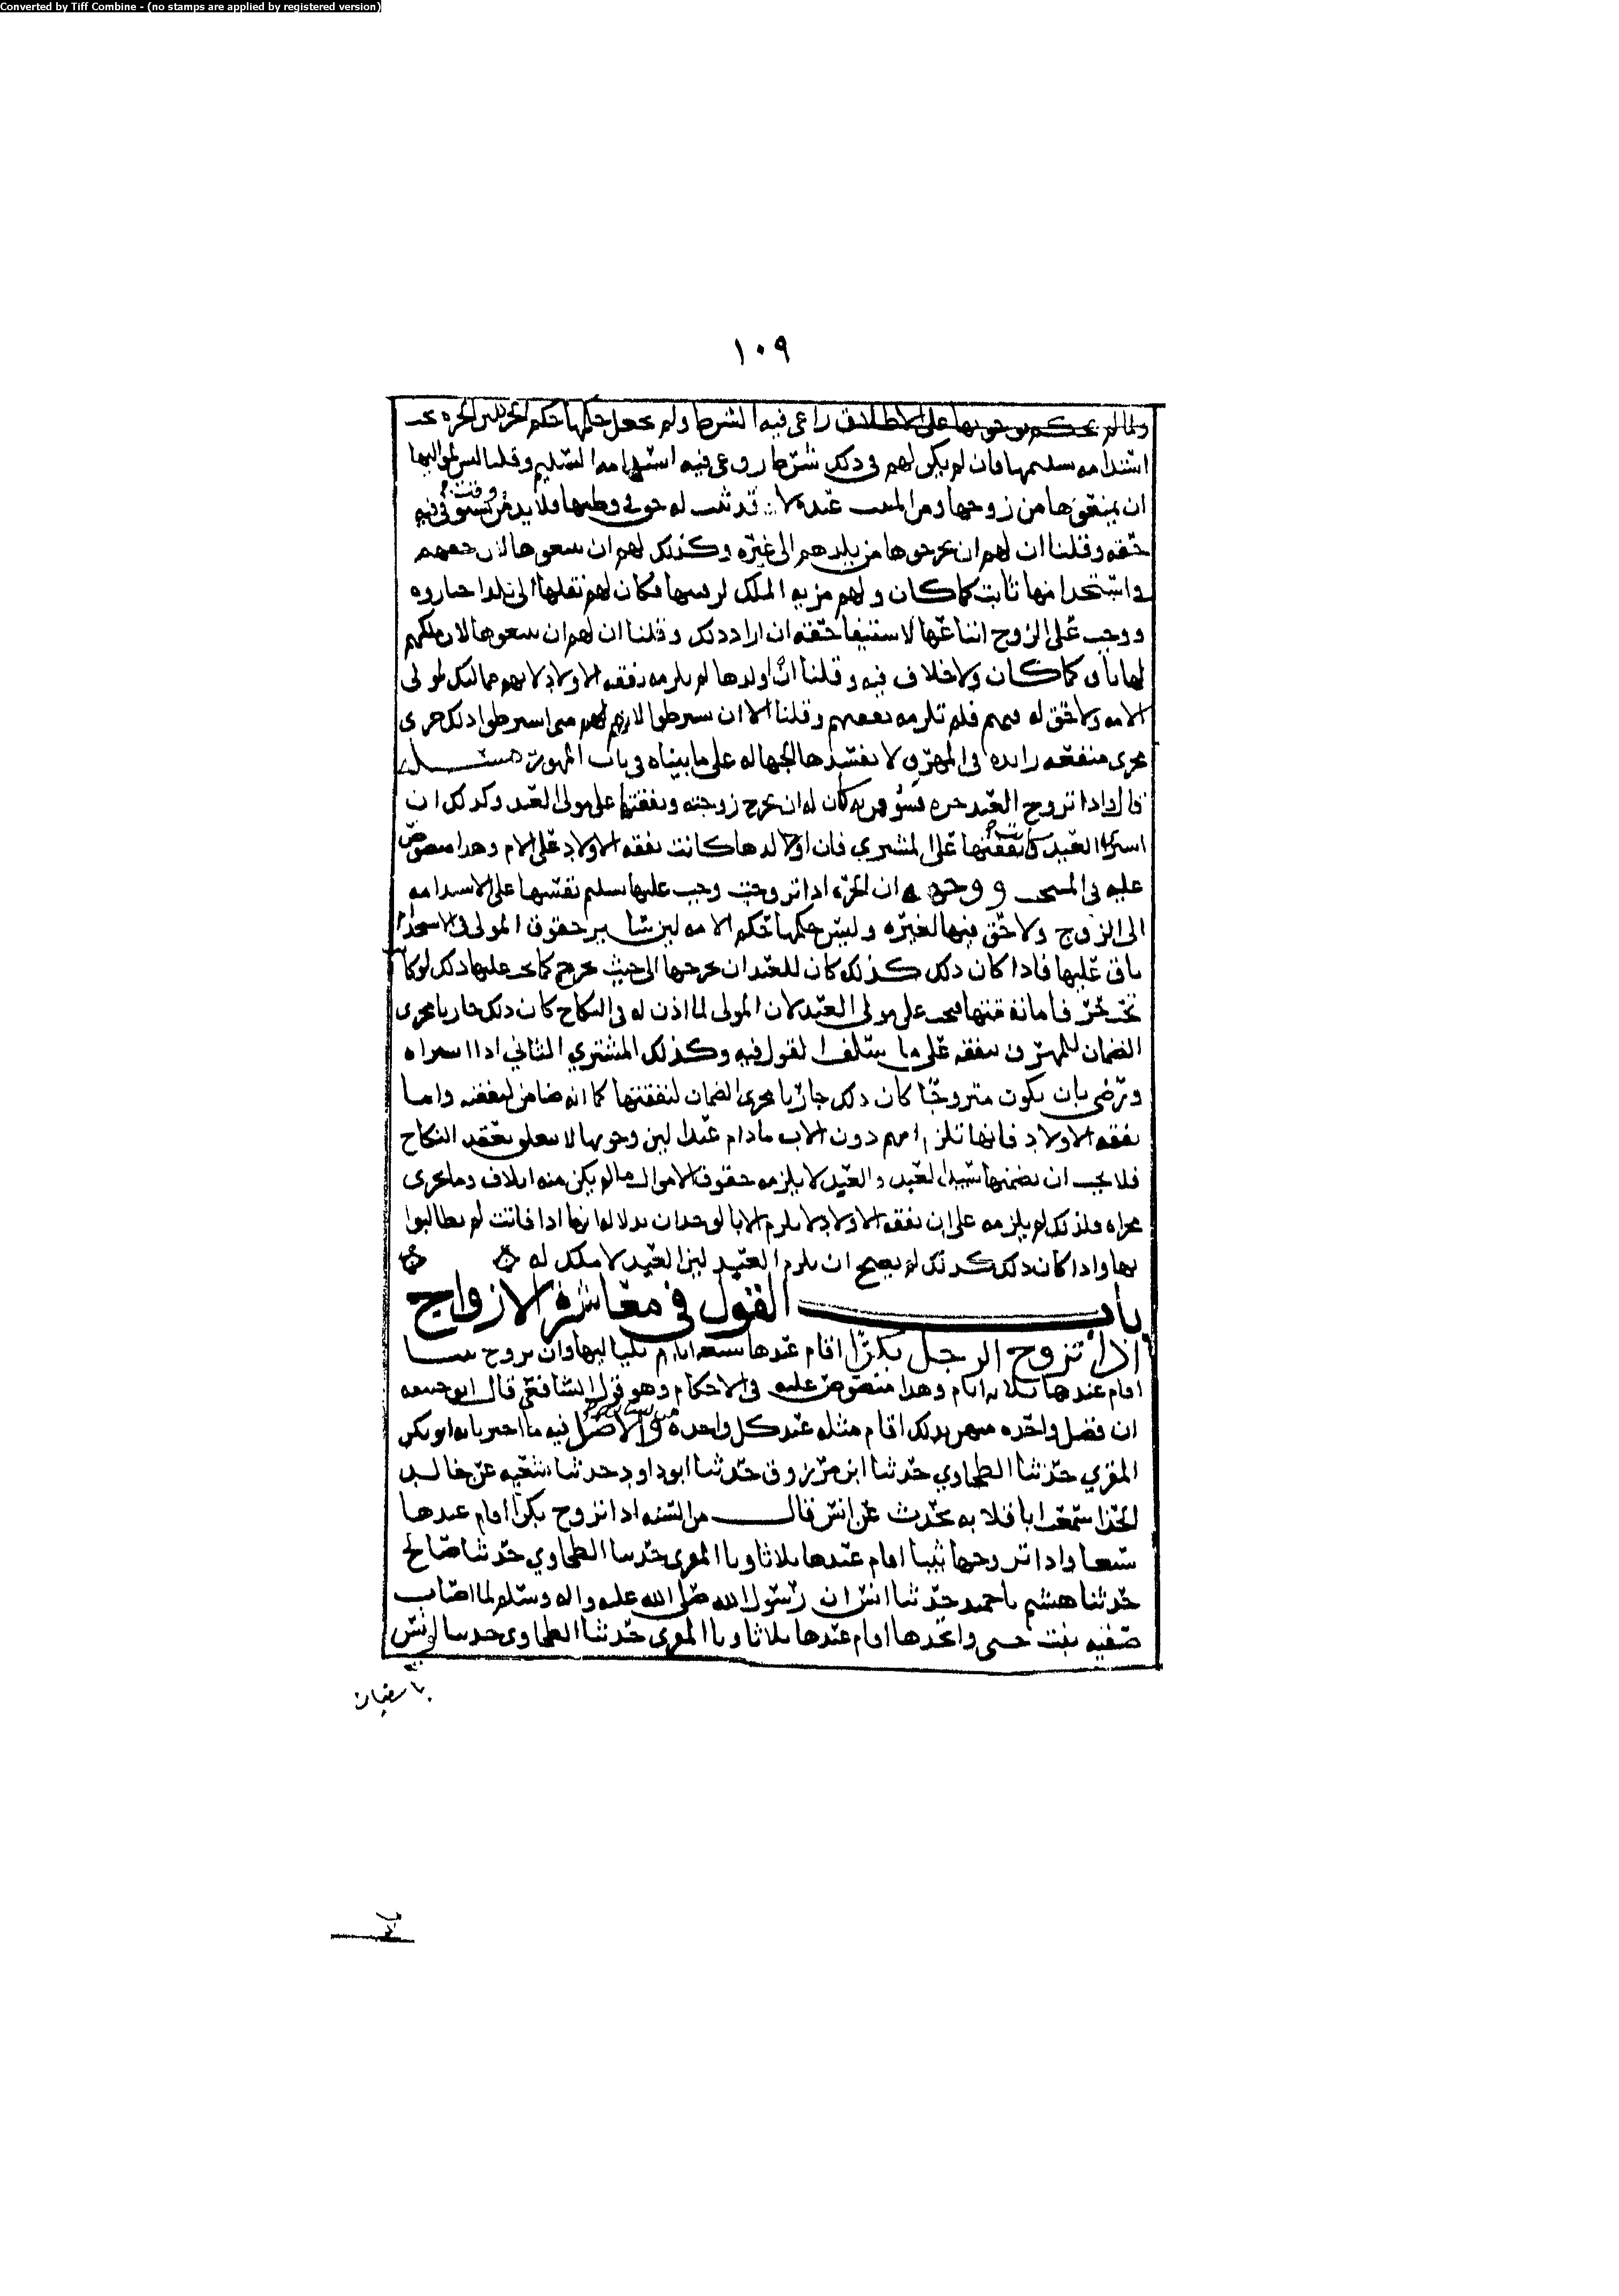 Converted by Tiff Combine - (no stamps are applied by registered version)
١٠٩
ولما لم يحكم بوجوبها على الاطلاق راعى فيه الشرط ولم يجعل حكمها حكم الحره لان الحره يجب
استدامه تسليمها فان لم يكن لهم في ذلك شرط روعى فيه استدامه التسليم وقلنا ليس لمواليها
ان يمنعوها من زوجها ومن المبيت عنده لانه قد ثبت له حق في وطيها ولا بد من وقت يستوفى فيه
حقه وقلنا ان لهم ان يخرجوها من بلدهم الى غيره وكذلك لهم ان يبيعوها لان حقهم
واستخدامها ثابت كما كان ولهم مزيه الملك لرقبتها فكان لهم نقلها الى بلد اختاروه
ووجب على الزوج اتباعها لاستيفا حقه ان اراد ذلك وقلنا ان لهم ان يبيعوها لان ملكهم
لها باق كما كان ولا خلاف فيه وقلنا ان اولدها لم يلزمه نفقه الاولاد لانهم مماليك لمولى
الامه ولا حق له فيهم فلم تلزمه نفقتهم وقلنا الا ان يشترطوا لانهم متى اشترطوا ذلك جرى
مجرى منفعه زايده في المهر لا تفسدها الجهاله على ما بيناه في باب المهور مسئله
قال واذا تزوج العبد حره كان له ان يخرج زوجته ونفقتها على مولى العبد وكذلك ان
اشترى العبد كانت نفقتها على المشتري فان اولدها كانت نفقه الاولاد على الام وهذا منصوص
عليه في المنتخب ووجهه ان الحره اذا تزوجت وجب عليها تسليم نفسها على الاستدامه
الى الزوج ولا حق فيها لغيره وليس حكمها حكم الامه لان حقوق المولى في الاستخدام
باق عليها فاذا كان ذلك كذلك كان للعبد ان يخرجها الى حيث يخرج كما يجب عليها ذلك لو كانت
تحت حر فاما نفقتها فتجب على مولى العبد لان المولى لما اذن له في النكاح كان ذلك جاريا مجرى
الضمان للمهر والنفقه على ما سلف القول فيه وكذلك المشتري الثاني اذا اشتراه
ورضي بان يكون متزوجا كان ذلك جاريا مجرى الضمان لنفقتها كما انه ضامن لنفقته واما
نفقه الاولاد فانها تلزم امهم دون الاب ما دام عبدا لان وجوبها لا يتعلق بعقد النكاح
فلا يجب ان يضمنها سيد العبد والعبد لا يلزمه حقوق الاموال ما لم يكن منه اتلاف وما جرى
مجراه فلذلك لم يلزمه على ان نفقه الاولاد لا يلزم الا بالوجدان بدلاله انها اذا فاتت لم يطالبوا
بها واذا كان ذلك كذلك لم يصح ان يلزم العبد لان العبد لا ملك له
باب القول في معاشرة الازواج
اذا تزوج الرجل بكرا اقام عندها سبعه ايام بلياليها وان تزوج ثيبا
اقام عندها ثلاثه ايام وهذا منصوص عليه في الاحكام وهو قول الشافعي قال ابو حنيفه
ان فضل واحده منهن بذلك اقام مثله عند كل واحده من نسائه والاصل فيه ما اخبرنا به ابو بكر
المقري حدثنا الطحاوي حدثنا ابن مرزوق حدثنا ابو داود حدثنا شعبه عن خالد
الحذا سمعت ابا قلابه يحدث عن انس قال من السنه اذا تزوج بكرا اقام عندها
سبعا واذا تزوجها ثيبا اقام عندها ثلاثا وبنا المقري حدثنا الطحاوي حدثنا صالح
حدثنا هشيم نا حميد حدثنا انس ان رسول الله صلى الله عليه واله وسلم لما اصاب
صفيه بنت حيي واتخذها اقام عندها ثلاثا ونا المقري حدثنا الطحاوي حدثنا يونس
نا سفيان